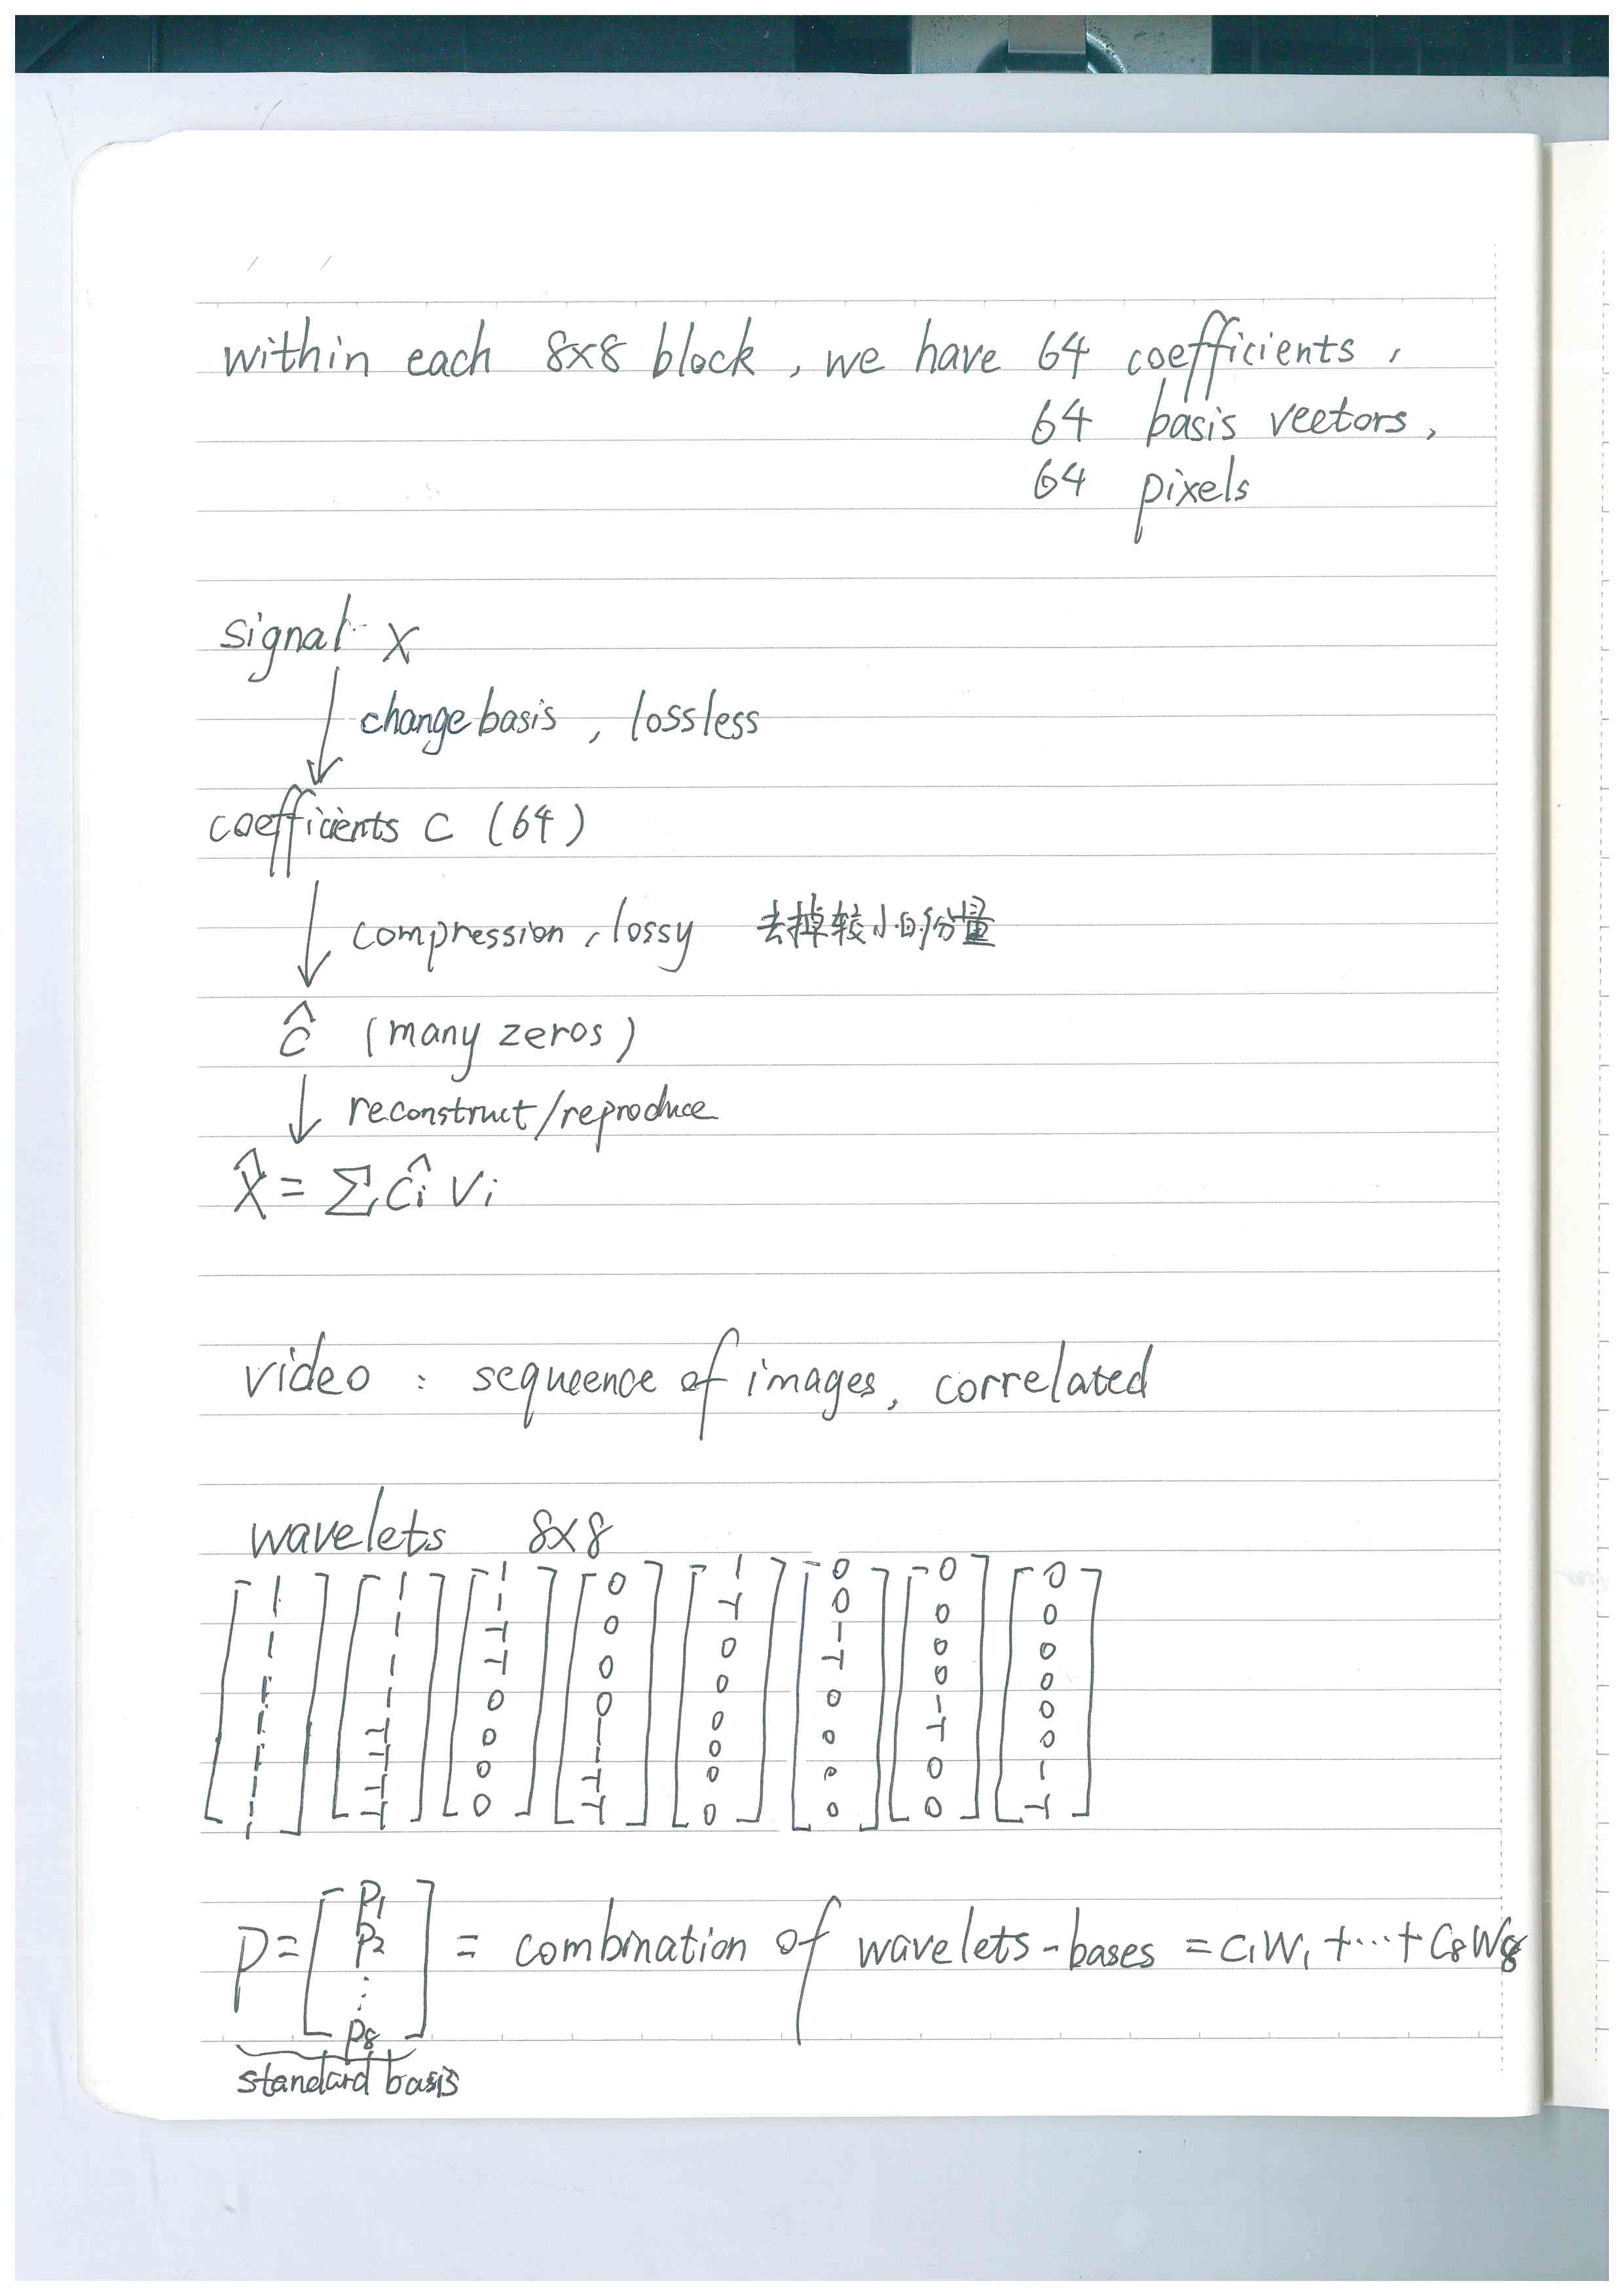 within each 8×8 block, we have 64 coefficients,
64 basis vectors,
64 pixels
signal x
change basis, lossless
coefficients c (64)
compression, lossy 去掉较小的份量
ĉ (many zeros)
reconstruct/reproduce
x̂ = ∑ ĉi vi
video : sequence of images, correlated
wavelets 8×8
[1 1 1 1 1 1 1 1] [1 1 1 1 -1 -1 -1 -1] [1 1 -1 -1 0 0 0 0] [0 0 0 0 1 1 -1 -1] [1 -1 0 0 0 0 0 0] [0 0 1 -1 0 0 0 0] [0 0 0 0 1 -1 0 0] [0 0 0 0 0 0 1 -1]
P = [p1 p2 ⋮ p8] = combination of wavelets-bases = c1w1 + ⋯ + c8w8
standard basis